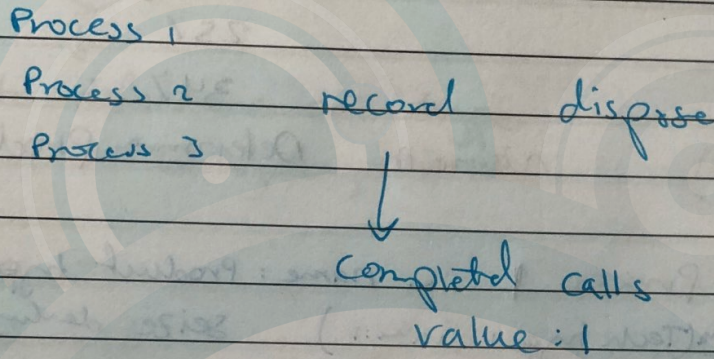 Process 1
Process 2 record dispose
Process 3
Completed calls
value : 1